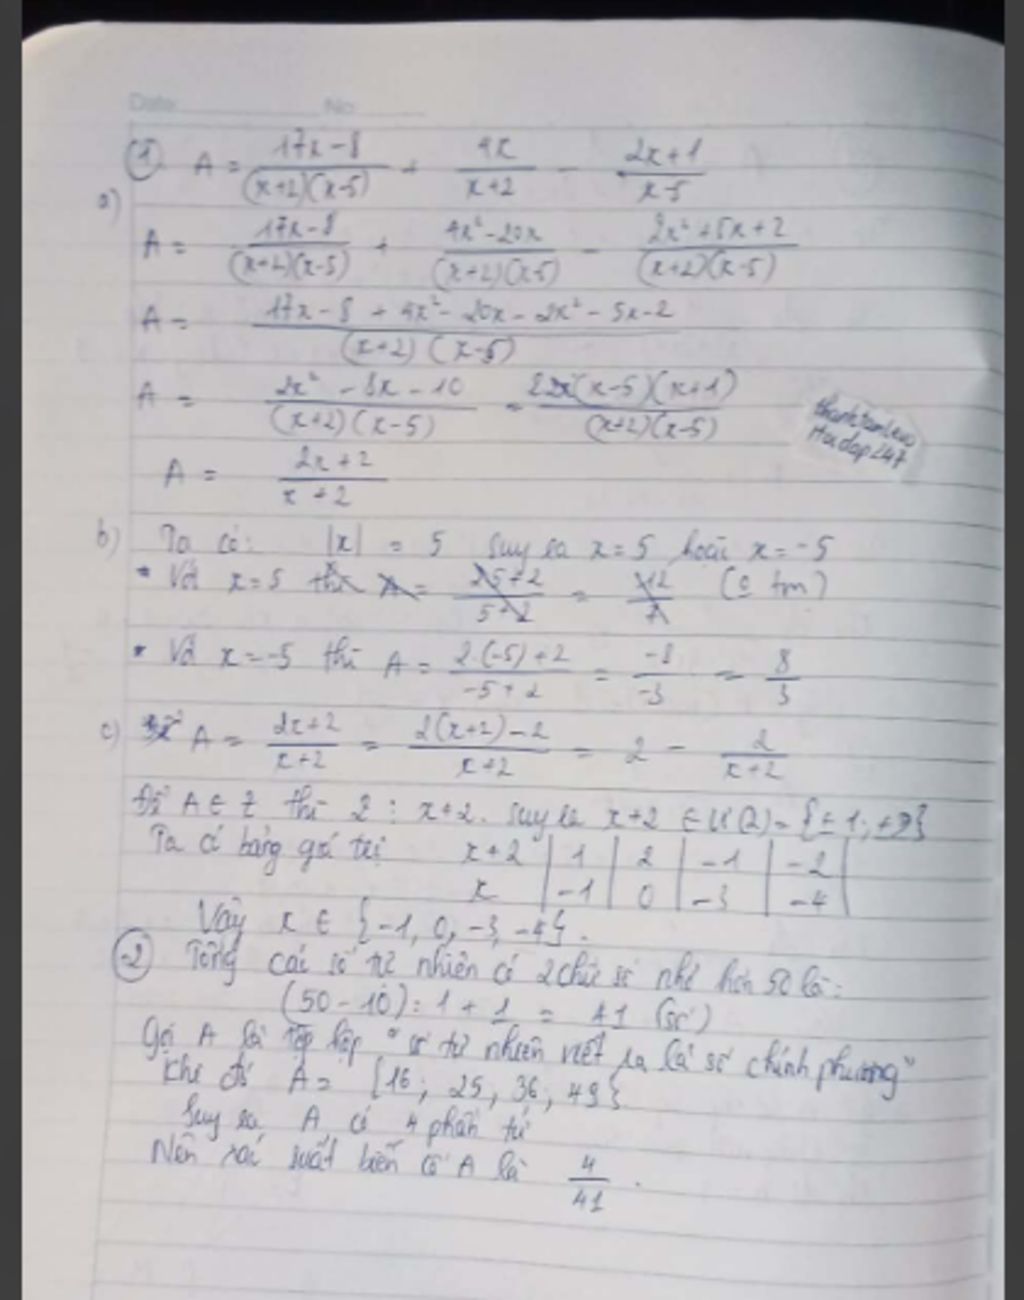 Date No
① A = \frac{17x-8}{(x+2)(x-5)} + \frac{4x}{x+2} - \frac{2x+1}{x-5}
a)
A = \frac{17x-8}{(x+2)(x-5)} + \frac{4x²-20x}{(x+2)(x-5)} - \frac{2x²+5x+2}{(x+2)(x-5)}
A = \frac{17x-8+4x²-20x-2x²-5x-2}{(x+2)(x-5)}
A = \frac{2x²-8x-10}{(x+2)(x-5)} = \frac{2(x-5)(x+1)}{(x+2)(x-5)}
thanhtam
Hoidap247
A = \frac{2x+2}{x+2}
b) Ta có: |x| = 5 suy ra x = 5 hoặc x = -5
* Với x = 5 (o tm)
* Với x = -5 thì A = \frac{2.(-5)+2}{-5+2} = \frac{-8}{-3} = \frac{8}{3}
c) A = \frac{2x+2}{x+2} = \frac{2(x+2)-2}{x+2} = 2 - \frac{2}{x+2}
Để A ∈ Z thì 2 ⋮ x+2. Suy ra x+2 ∈ Ư(2) = {±1; ±2}
Ta có bảng giá trị x+2 | 1 | 2 | -1 | -2 |
x | -1 | 0 | -3 | -4 |
Vậy x ∈ {-1, 0, -3, -4}.
② Tổng các số tự nhiên có 2 chữ số nhỏ hơn 50 là:
(50 - 10) : 1 + 1 = 41 (số)
Gọi A là tập hợp "số tự nhiên viết ra là số chính phương"
Khi đó A = {16; 25; 36; 49}
Suy ra A có 4 phần tử
Nên xác suất biến cố A là \frac{4}{41}.